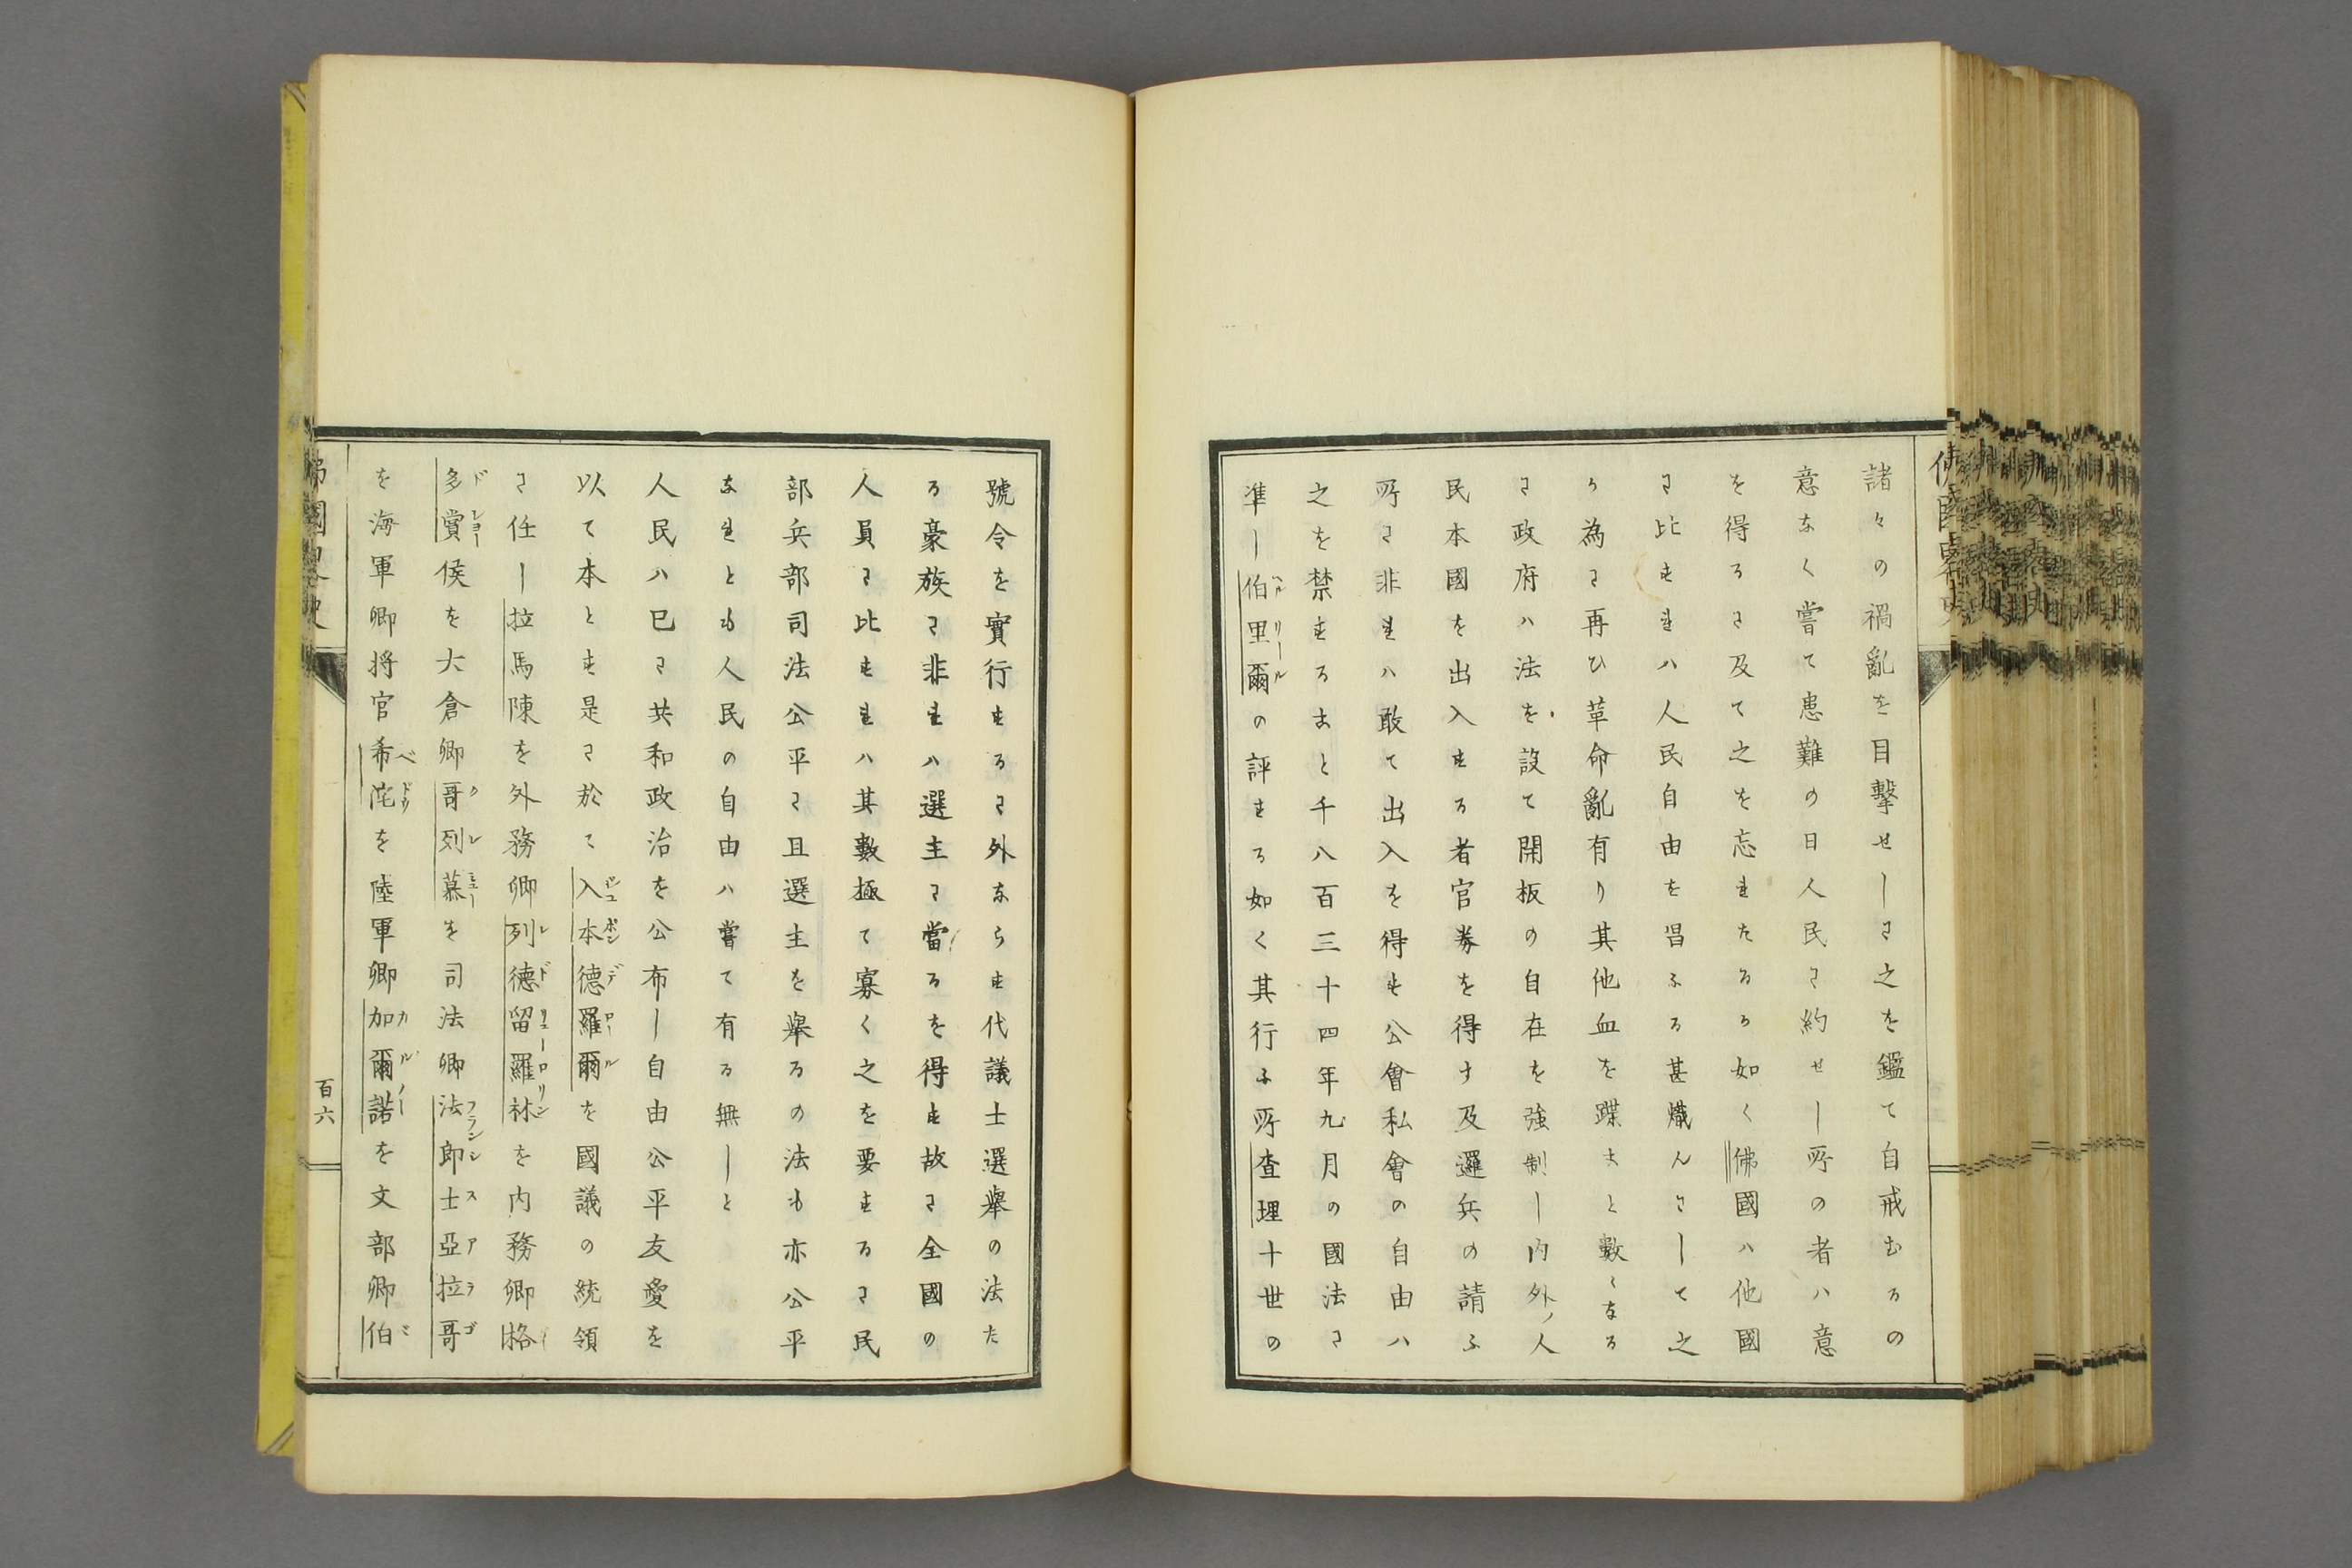 諸々の禍亂を目撃せしに之を鑑て自戒むるの
意なく嘗て患難の日人民に約せし所の者ハ意
を得るに及て之を忘れたるる如く佛國ハ他國
に比すれハ人民自由を唱ふる甚熾んにして之
か為に再ひ革命亂有り其他血を蹀こと數〻なる
に政府ハ法を設て開板の自在を強制し内外ノ人
民本國を出入する者官券を得す及邏兵の請ふ
所に非れハ敢て出入を得す公會私會の自由ハ
之を禁すること千八百三十四年九月の國法に
準し伯里爾の評する如く其行ふ所査理十世の
號令を實行するに外ならす代議士選舉の法た
る豪族に非れハ選主に當るを得す故に全國の
人員に比すれハ其數極て寡く之を要するに民
部兵部司法公平に且選主を舉るの法も亦公平
なれとも人民の自由ハ嘗て有る無しと
人民ハ已に共和政治を公布し自由公平友愛を
以て本とす是に於て入本德羅爾を國議の統領
に任し拉馬陳を外務卿列德留羅林を内務卿格
多賞侯を大倉卿哥列慕を司法卿法郎士亞拉哥
を海軍卿将官希沱を陸軍卿加爾諾を文部卿伯
百六